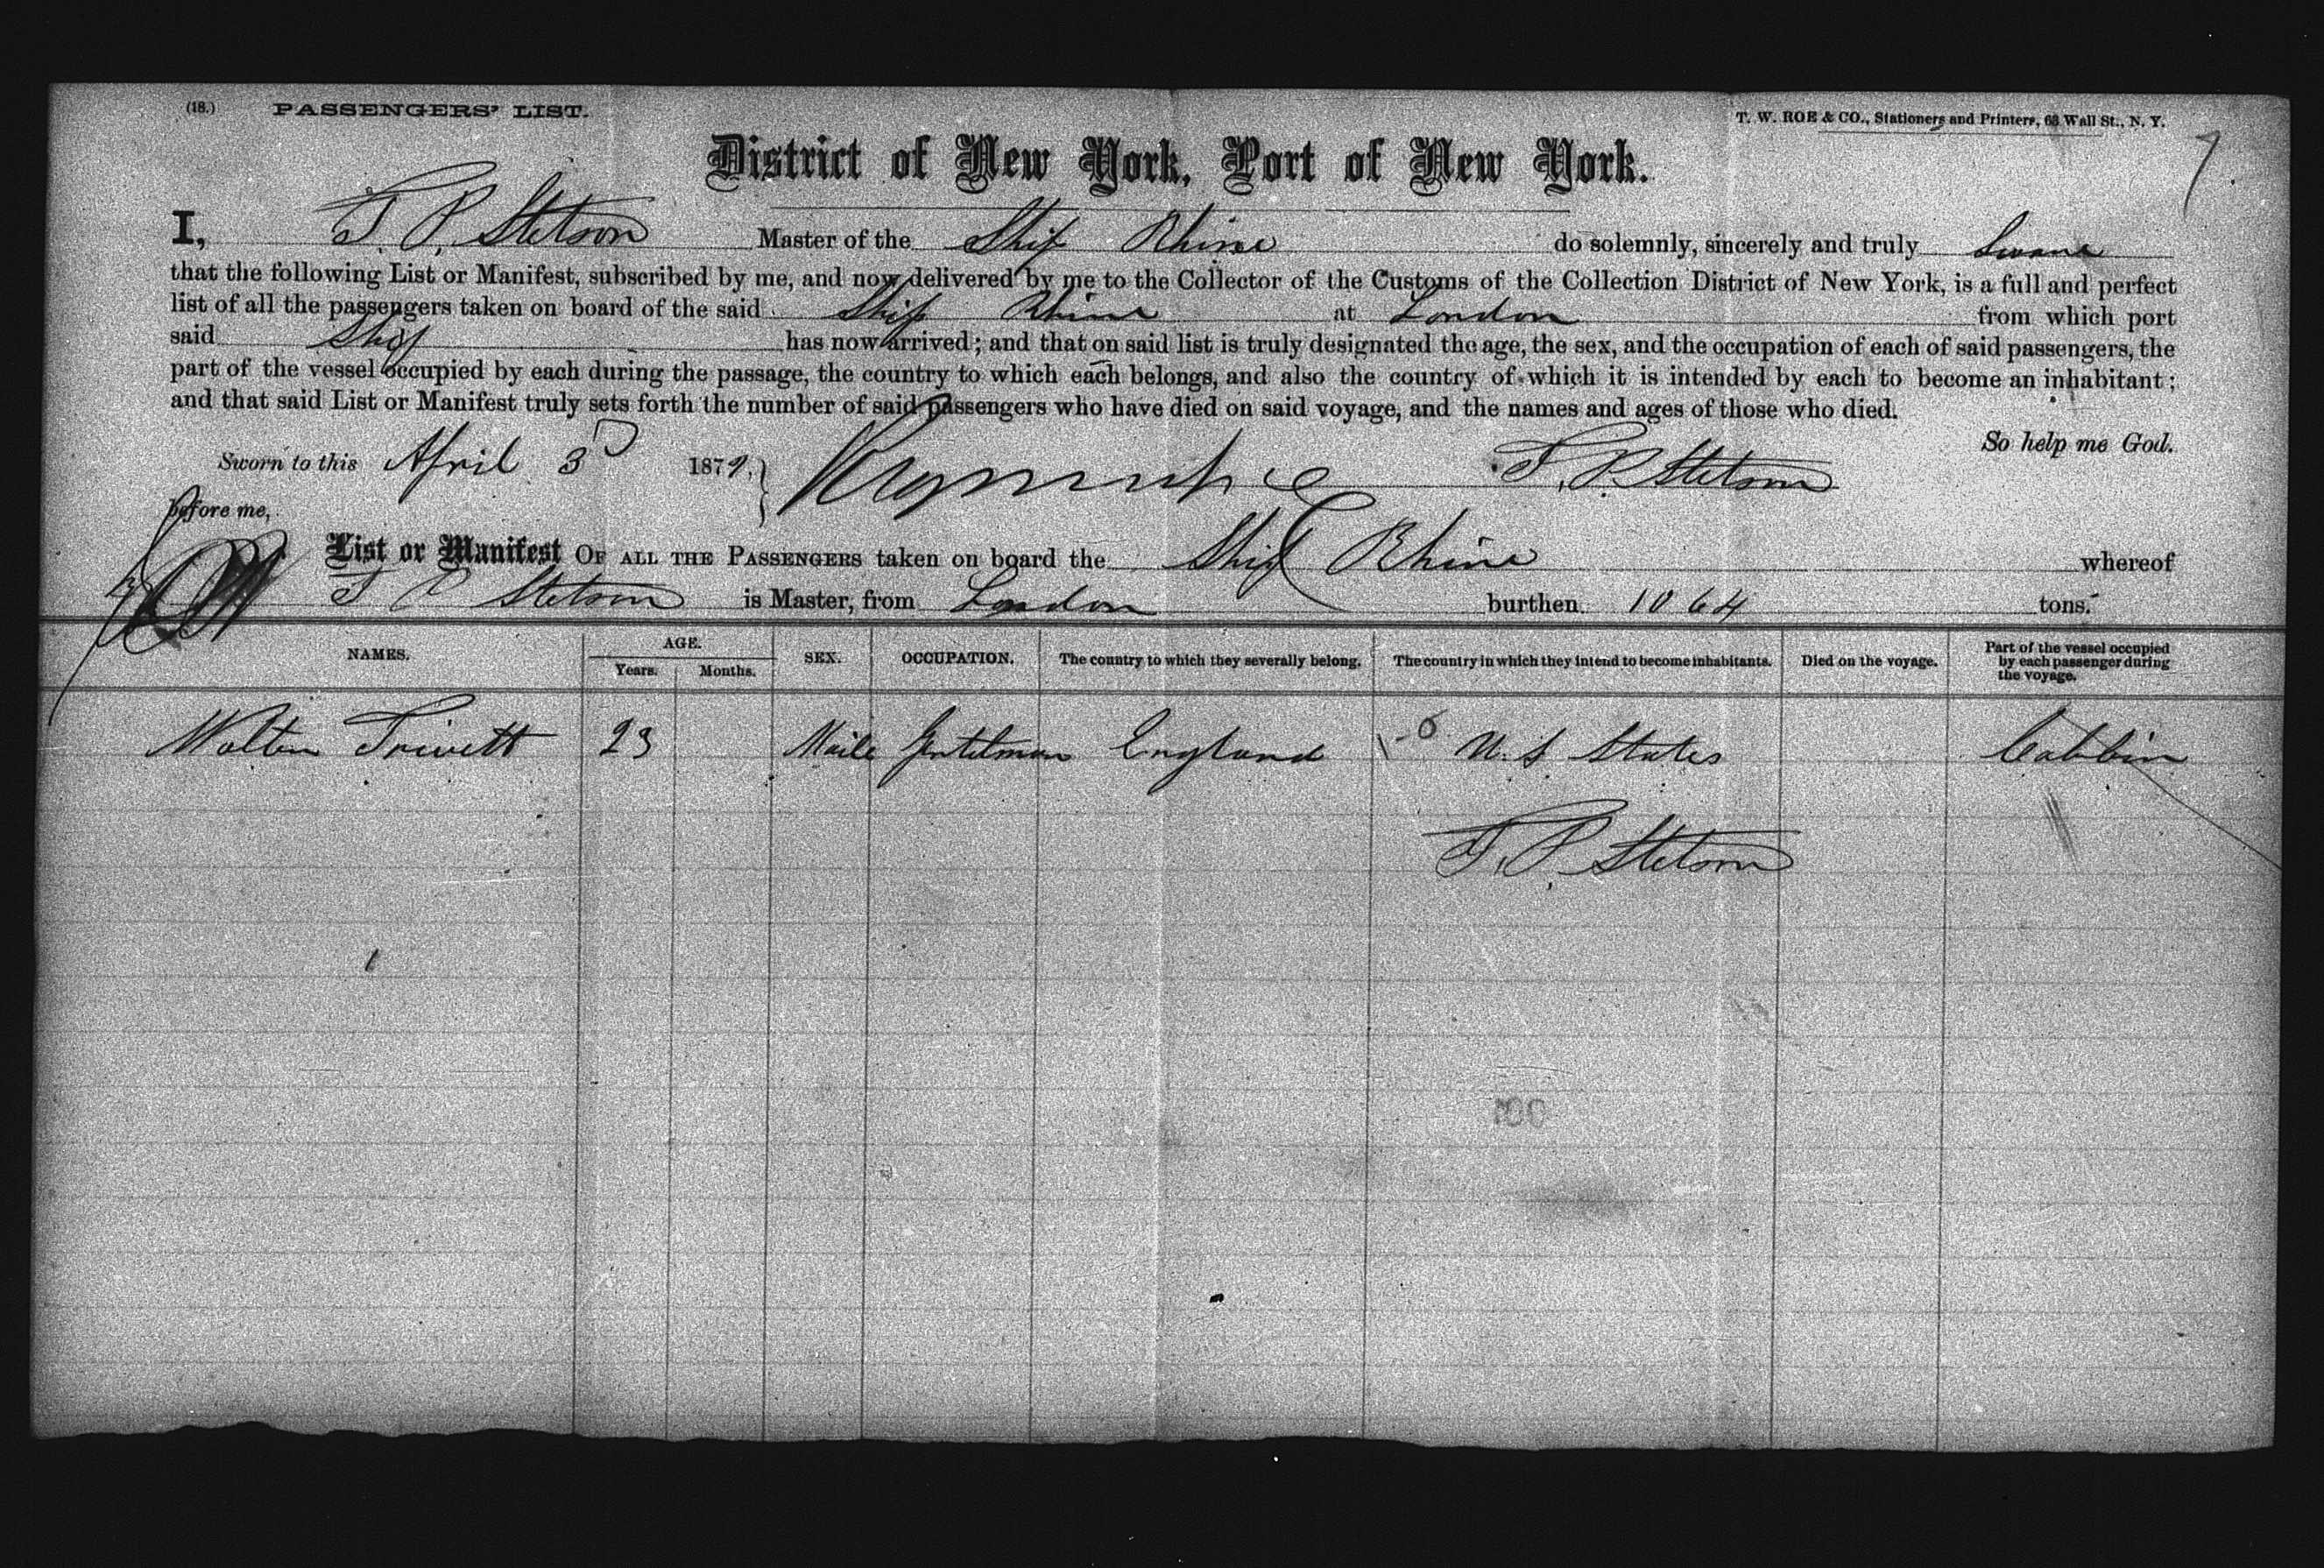 (18.) PASSENGERS' LIST.
T. W. ROE & CO., Stationers and Printers, 63 Wall St., N. Y.
7
District of New York, Port of New York.
I, T. P. Stetson Master of the Ship Rhine do solemnly, sincerely and truly Sware
that the following List or Manifest, subscribed by me, and now delivered by me to the Collector of the Customs of the Collection District of New York, is a full and perfect
list of all the passengers taken on board of the said Ship Rhine at London from which port
said Ship has now arrived; and that on said list is truly designated the age, the sex, and the occupation of each of said passengers, the
part of the vessel occupied by each during the passage, the country to which each belongs, and also the country of which it is intended by each to become an inhabitant;
and that said List or Manifest truly sets forth the number of said passengers who have died on said voyage, and the names and ages of those who died.
So help me God.
Sworn to this April 3d 1879. T. P. Stetson
before me,
List or Manifest OF ALL THE PASSENGERS taken on board the Ship Rhine whereof
T P Stetson is Master, from London burthen 1064 tons.
NAMES. AGE. Years. Months. SEX. OCCUPATION. The country to which they severally belong. The country in which they intend to become inhabitants. Died on the voyage. Part of the vessel occupied by each passenger during the voyage.
Walten Trivett 23 Maile Gentelman England U. S States Cabbin
T. P. Stetson
1
100